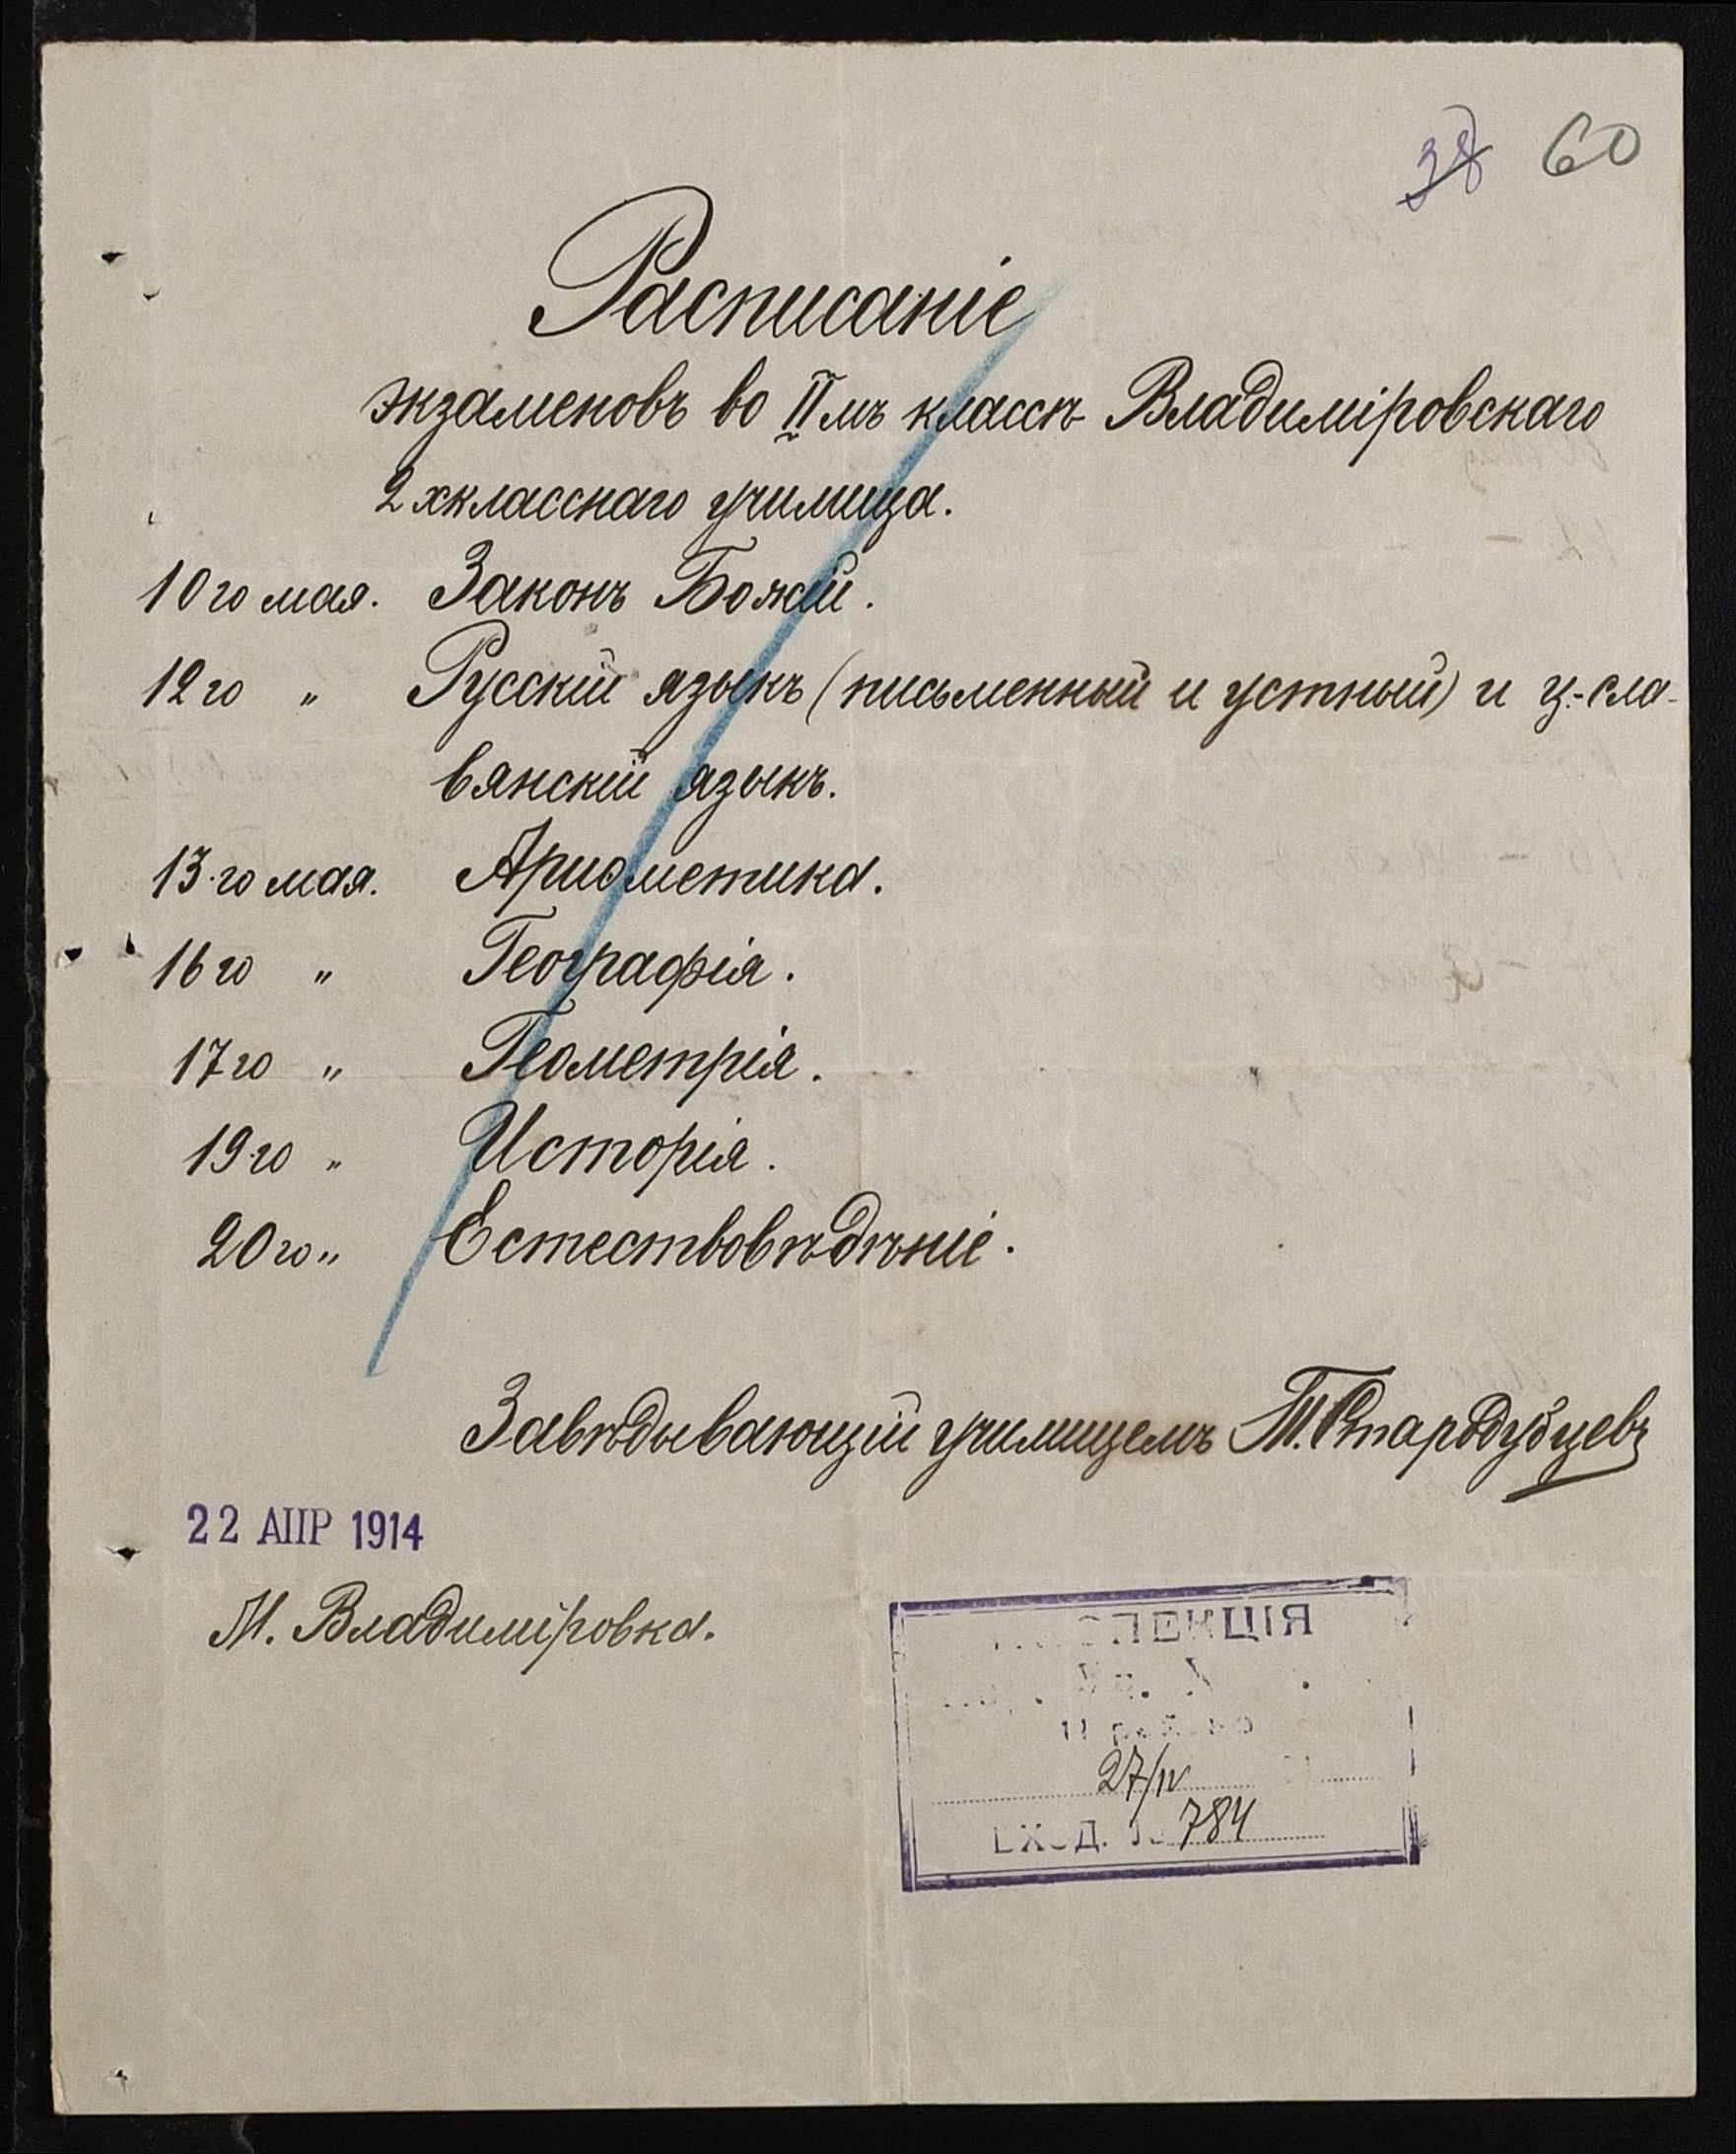 38 60
Расписаніе
экзаменовъ во IIмъ классѣ Владиміровскаго
2хкласснаго училища.
10го мая. Законъ Божій.
12го " Русскій языкъ (письменный и устный) и ц.-сла-
вянскій языкъ.
13-го мая. Ариѳметика.
16го " Географія.
17го " Геометрія.
19го " Исторія.
20го " Естествовѣдѣніе.
Завѣдывающій училищемъ Т. Стародубцевъ
22 АПР 1914
М. Владиміровка.
27/IV
784